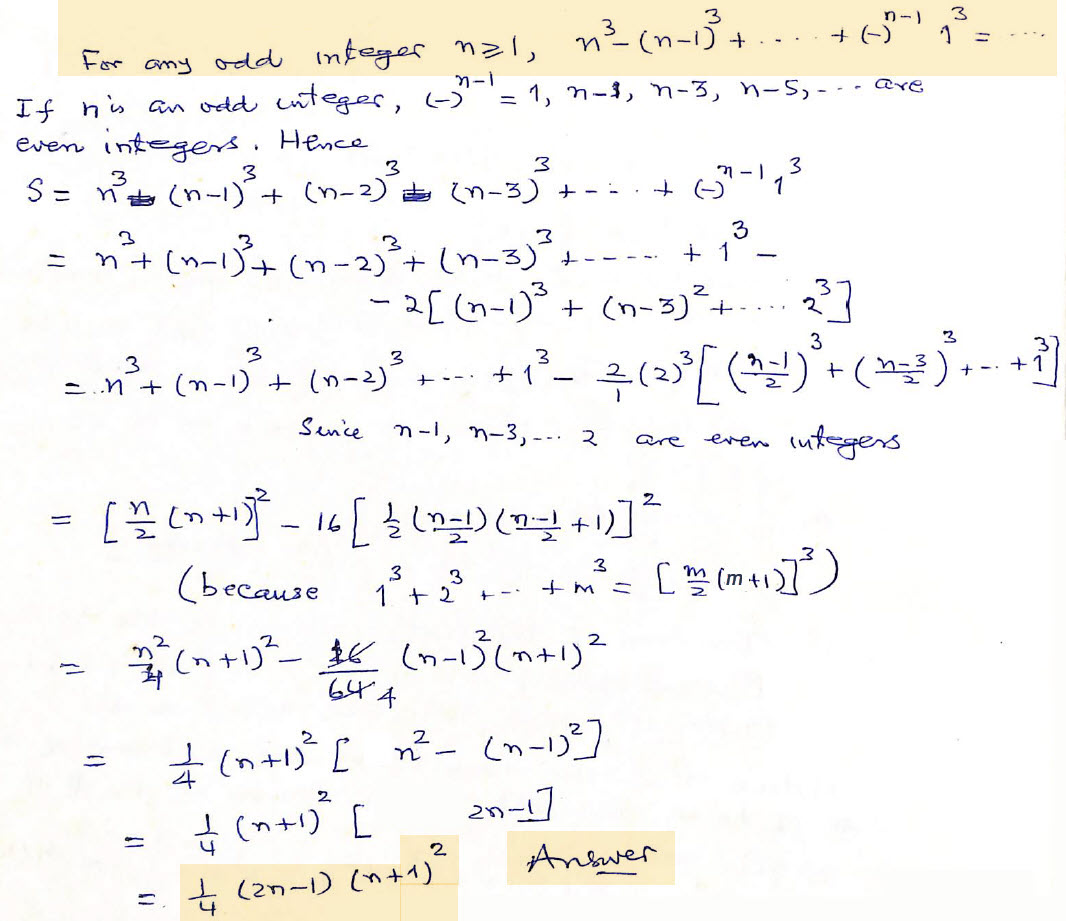 For any odd integer n≥1, n³-(n-1)³+.....+(-)ⁿ⁻¹ 1³ = ....
If n is an odd integer, (-)ⁿ⁻¹ = 1, n-1, n-3, n-5,--- are
even integers. Hence
S = n³-(n-1)³+(n-2)³-(n-3)³+---..+(-)ⁿ⁻¹1³
= n³+(n-1)³+(n-2)³+(n-3)³+-----..+1³-
-2[(n-1)³+(n-3)²+....2³]
= n³+(n-1)³+(n-2)³+---.+1³-2/1(2)³[((n-1)/2)³+((n-3)/2)³+--.+1³]
Senice n-1, n-3,--.. 2 are even integers
= [n/2(n+1)]²-16[1/2((n-1)/2)((n-1)/2+1)]²
(because 1³+2³+--.+m³ = [m/2(m+1)]³)
= n²/4(n+1)²-16/64 4 (n-1)²(n+1)²
= 1/4(n+1)²[n²-(n-1)²]
= 1/4(n+1)²[2n-1]
= 1/4(2n-1)(n+1)² Answer